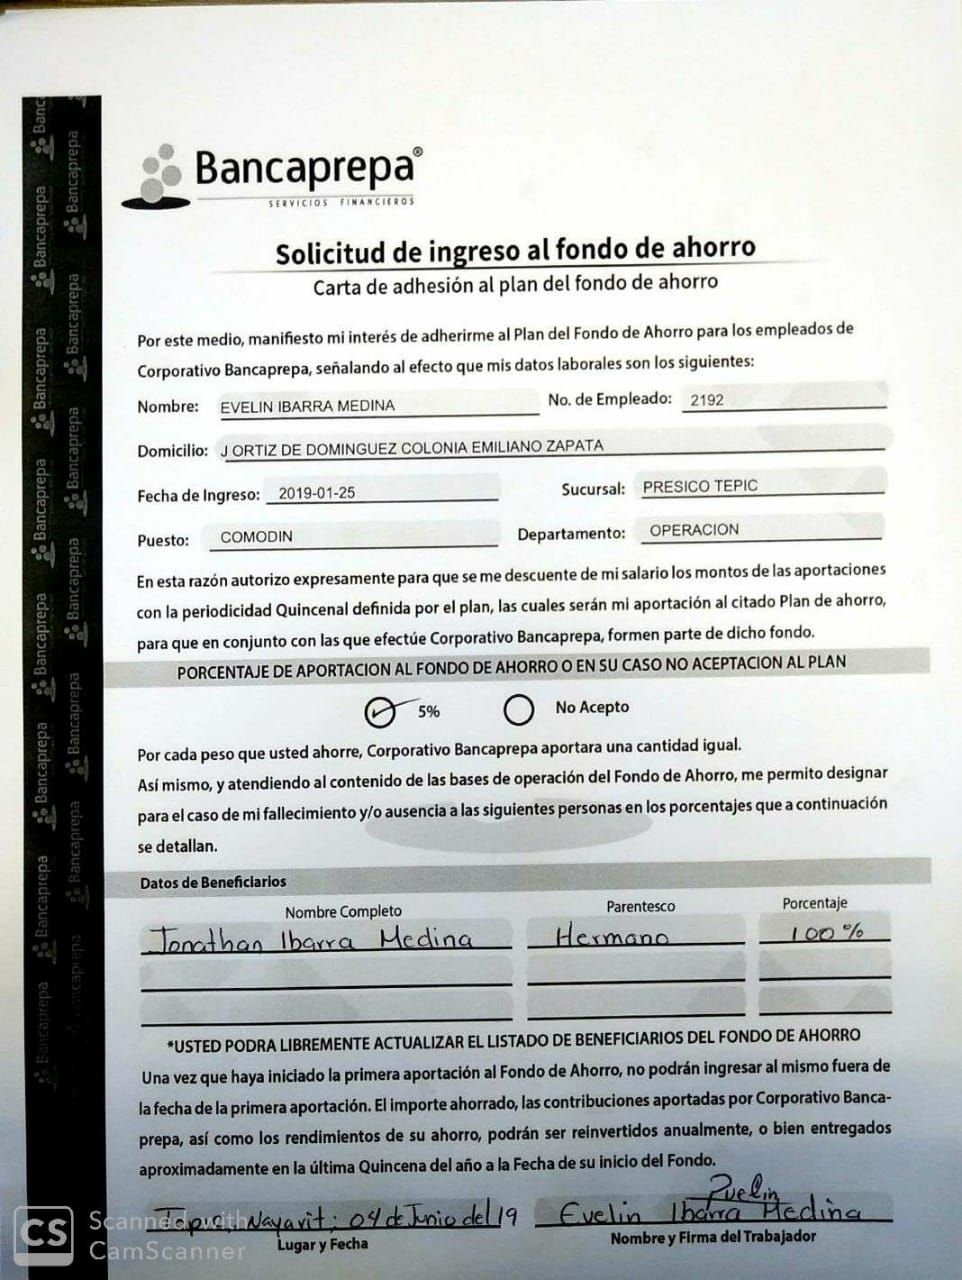 Bancaprepa®
SERVICIOS FINANCIEROS
Solicitud de ingreso al fondo de ahorro
Carta de adhesión al plan del fondo de ahorro
Por este medio, manifiesto mi interés de adherirme al Plan del Fondo de Ahorro para los empleados de
Corporativo Bancaprepa, señalando al efecto que mis datos laborales son los siguientes:
Nombre: EVELIN IBARRA MEDINA No. de Empleado: 2192
Domicilio: J ORTIZ DE DOMINGUEZ COLONIA EMILIANO ZAPATA
Fecha de Ingreso: 2019-01-25 Sucursal: PRESICO TEPIC
Puesto: COMODIN Departamento: OPERACION
En esta razón autorizo expresamente para que se me descuente de mi salario los montos de las aportaciones
con la periodicidad Quincenal definida por el plan, las cuales serán mi aportación al citado Plan de ahorro,
para que en conjunto con las que efectúe Corporativo Bancaprepa, formen parte de dicho fondo.
PORCENTAJE DE APORTACION AL FONDO DE AHORRO O EN SU CASO NO ACEPTACION AL PLAN
5% No Acepto
Por cada peso que usted ahorre, Corporativo Bancaprepa aportara una cantidad igual.
Así mismo, y atendiendo al contenido de las bases de operación del Fondo de Ahorro, me permito designar
para el caso de mi fallecimiento y/o ausencia a las siguientes personas en los porcentajes que a continuación
se detallan.
Datos de Beneficiarios
Nombre Completo Parentesco Porcentaje
Jonathan Ibarra Medina Hermano 100%
*USTED PODRA LIBREMENTE ACTUALIZAR EL LISTADO DE BENEFICIARIOS DEL FONDO DE AHORRO
Una vez que haya iniciado la primera aportación al Fondo de Ahorro, no podrán ingresar al mismo fuera de
la fecha de la primera aportación. El importe ahorrado, las contribuciones aportadas por Corporativo Banca-
prepa, así como los rendimientos de su ahorro, podrán ser reinvertidos anualmente, o bien entregados
aproximadamente en la última Quincena del año a la Fecha de su inicio del Fondo.
Nayarit; 04 de Junio del 19 Evelin Ibarra Medina
Lugar y Fecha Nombre y Firma del Trabajador
CS Scanned with
CamScanner